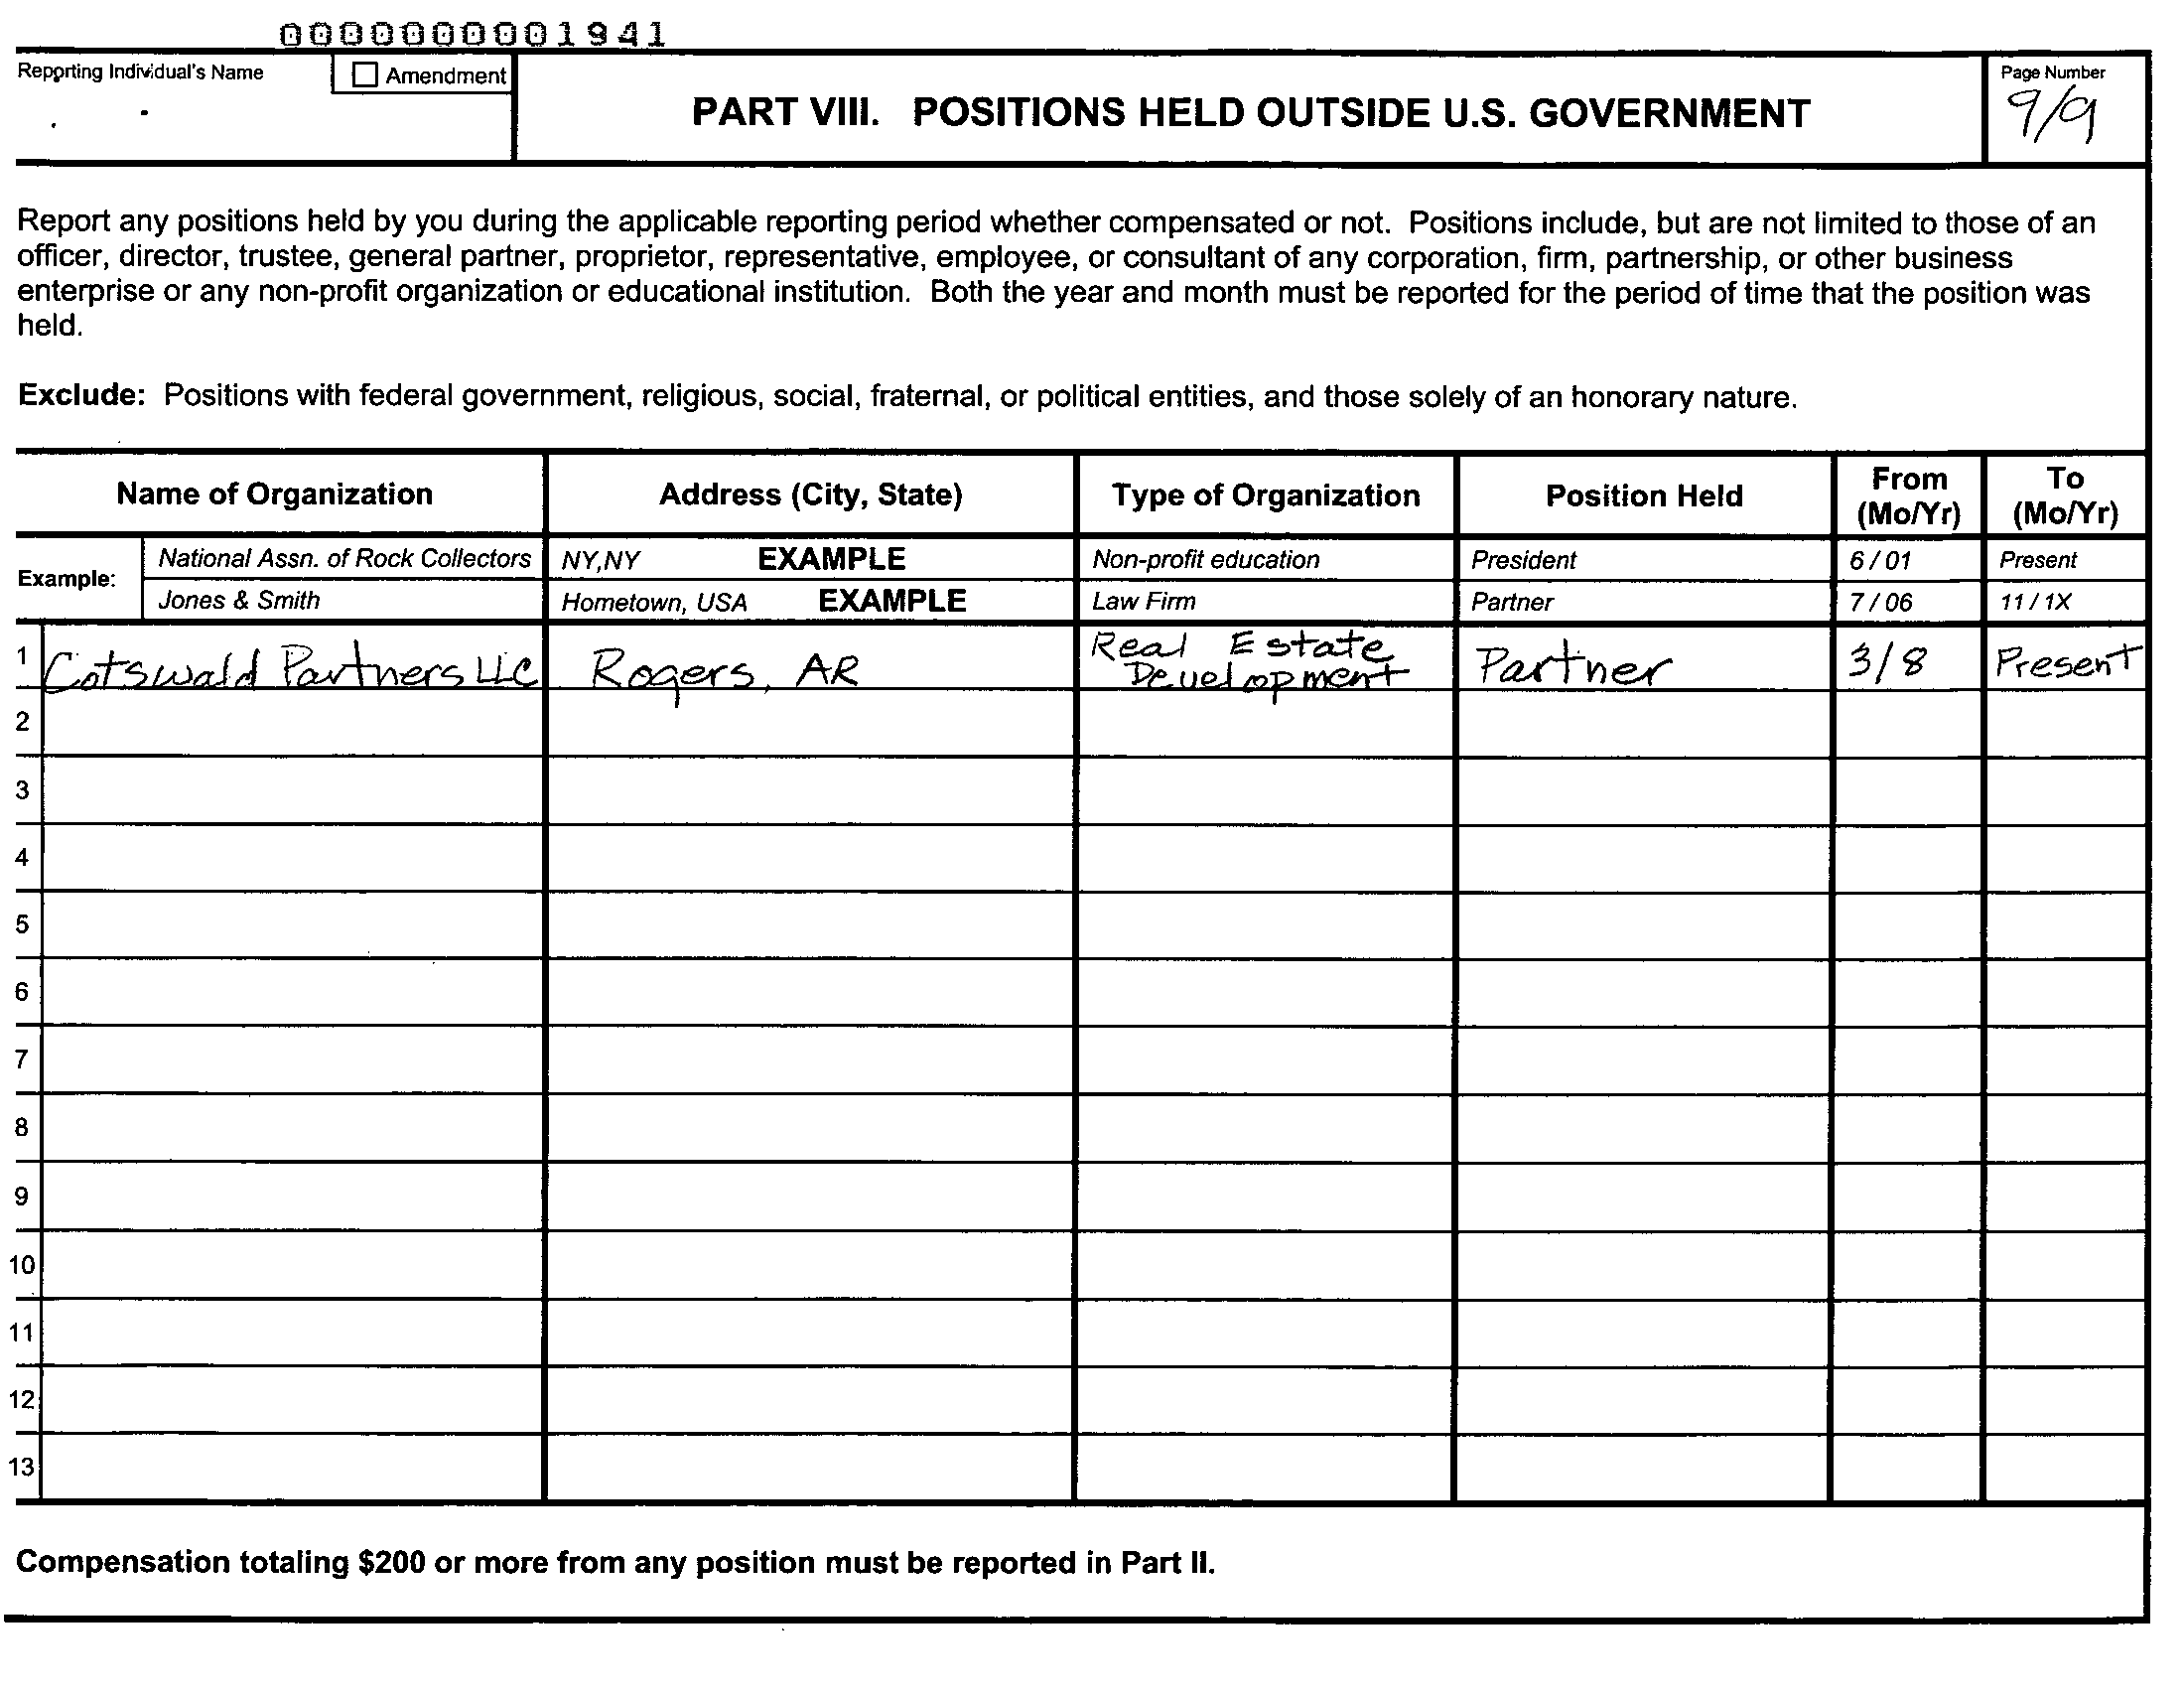 0000000001941
Reporting Individual's Name
Amendment
PART VIII. POSITIONS HELD OUTSIDE U.S. GOVERNMENT
Page Number
9/9
Report any positions held by you during the applicable reporting period whether compensated or not. Positions include, but are not limited to those of an
officer, director, trustee, general partner, proprietor, representative, employee, or consultant of any corporation, firm, partnership, or other business
enterprise or any non-profit organization or educational institution. Both the year and month must be reported for the period of time that the position was
held.
Exclude: Positions with federal government, religious, social, fraternal, or political entities, and those solely of an honorary nature.
Name of Organization Address (City, State) Type of Organization Position Held From (Mo/Yr) To (Mo/Yr)
Example:
National Assn. of Rock Collectors NY,NY EXAMPLE Non-profit education President 6 / 01 Present
Jones & Smith Hometown, USA EXAMPLE Law Firm Partner 7 / 06 11 / 1X
1 Cotswald Partners LLC Rogers, AR Real Estate Development Partner 3/8 Present
2
3
4
5
6
7
8
9
10
11
12
13
Compensation totaling $200 or more from any position must be reported in Part II.